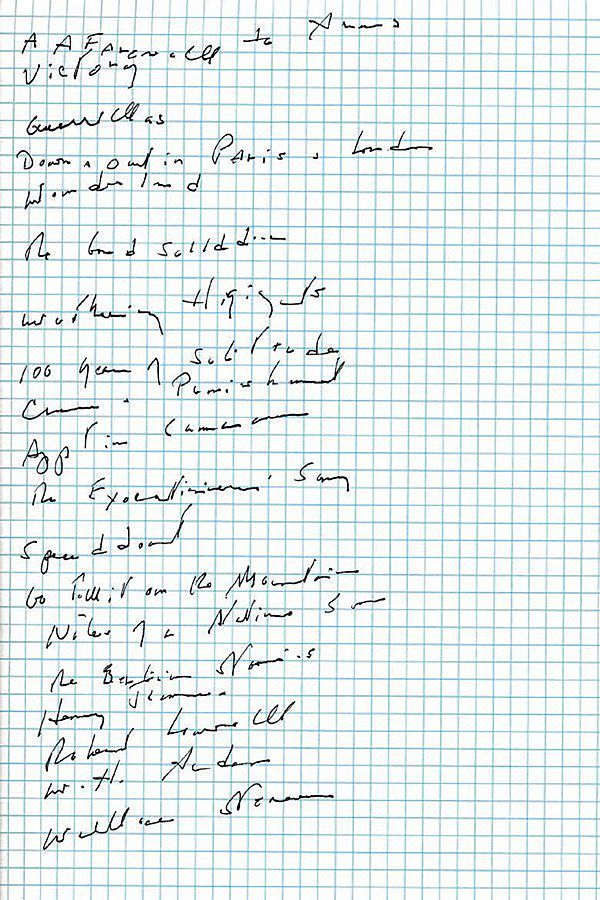 A A Farewell to Arms
Victory
Guerrillas
Down & Out in Paris & London
Wonderland
The Good Soldier
Wuthering Heights
100 Years of Solitude
Crime & Punishment
App in
The Executioner's Song
Speedboat
Go Tell it on the Mountain
Notes of a Native Son
The Berlin Stories
Henry James
Robert Lowell
W. H. Auden
Wallace Stevens